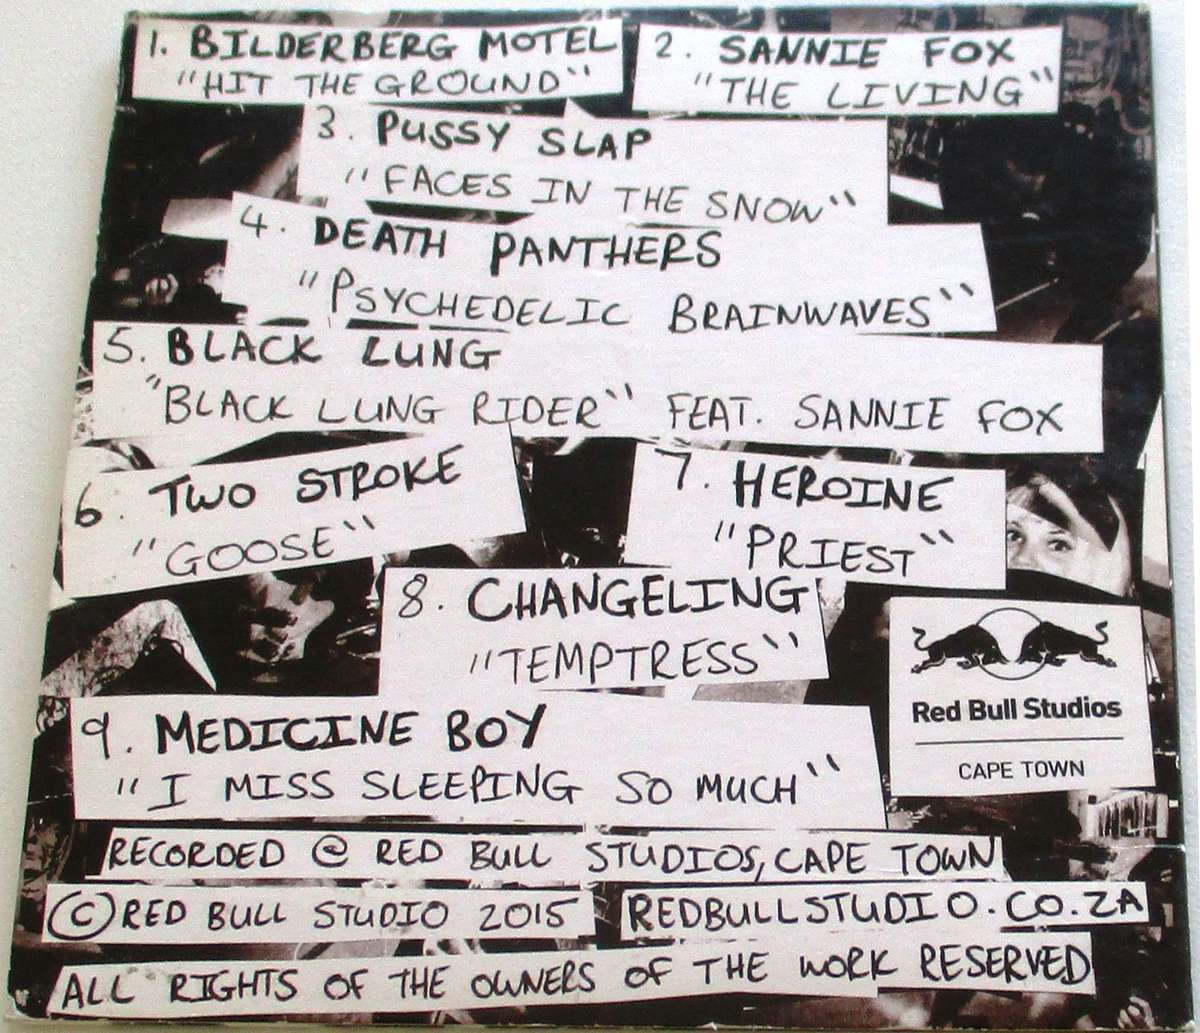 1. BILDERBERG MOTEL
"HIT THE GROUND"
2. SANNIE FOX
"THE LIVING"
3. PUSSY SLAP
"FACES IN THE SNOW"
4. DEATH PANTHERS
"PSYCHEDELIC BRAINWAVES"
5. BLACK LUNG
"BLACK LUNG RIDER" FEAT. SANNIE FOX
6. TWO STROKE
"GOOSE"
7. HEROINE
"PRIEST"
8. CHANGELING
"TEMPTRESS"
Red Bull Studios
CAPE TOWN
9. MEDICINE BOY
"I MISS SLEEPING SO MUCH"
RECORDED @ RED BULL STUDIOS, CAPE TOWN
© RED BULL STUDIO 2015
REDBULLSTUDIO.CO.ZA
ALL RIGHTS OF THE OWNERS OF THE WORK RESERVED